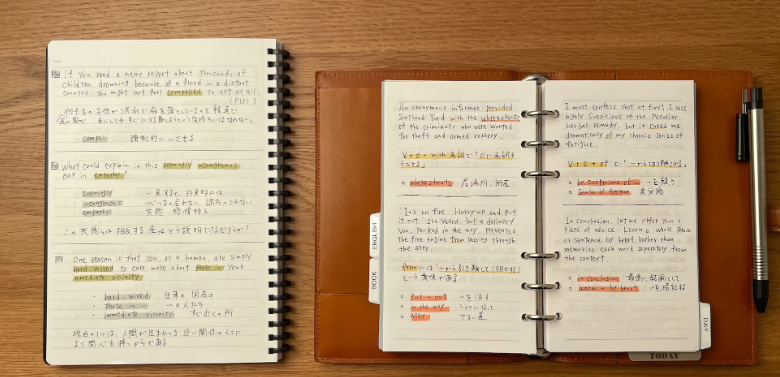 If you read a news report about thousands of
children drowning because of a flood in a distant
country, you might not feel compelled to act at all.
(P121)
compel 強制的に…させる
What could explain in this seemingly incongruous
out in empathy?
seemingly 一見すると、外見的には
incongruous つじつまの合わない、調和のとれない
empathy 共感・感情移入
One reason is that you as a human, are simply
hard-wired to care more about those in your
immediate vicinity
・hard-wired 生来の 固有の
・those in … …の人たち
・immediate vicinity すぐ近くの所
理由の1つは、人間が生まれつき、近い関係の人々に
より関心を持つからである
An anonymous informer provided
Scotland Yard with the whereabouts
of the criminals who were wanted
for theft and armed robbery.
V + O + with 名詞で「Oに名詞を
whereabouts 居場所、所在
It's on fire. Hurry up and put
it out. she yelled, but a delivery
van, parked in the way, prevented
the fire engine from passing through
the alley.
という意味がある
put … out …を消す
in the way
alley
ENGLISH
BOOK
I must confess that at first I was
highly suspicious of the peculiar
herbal remedy, but it cured me
dramatically of my chronic sense of
fatigue.
V + O + of で
be suspicious of … …を疑う
sense of fatigue 疲労感
In conclusion, let me offer you a
piece of advice: Learn a whole phrase
or sentence by heart rather than
memorize each word separately from
the context.
in conclusion 最後に、結論として
learn … by heart …を暗記する
DAY
TODAY